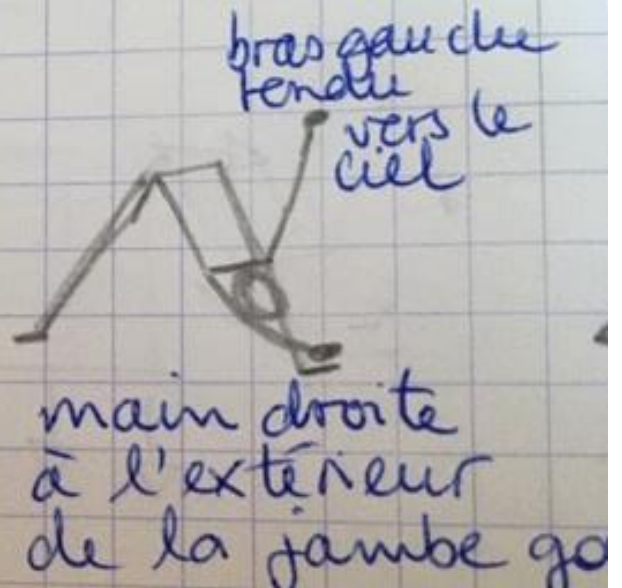 bras gauche
tendu
vers le
ciel
main droite
à l'extérieur
de la jambe